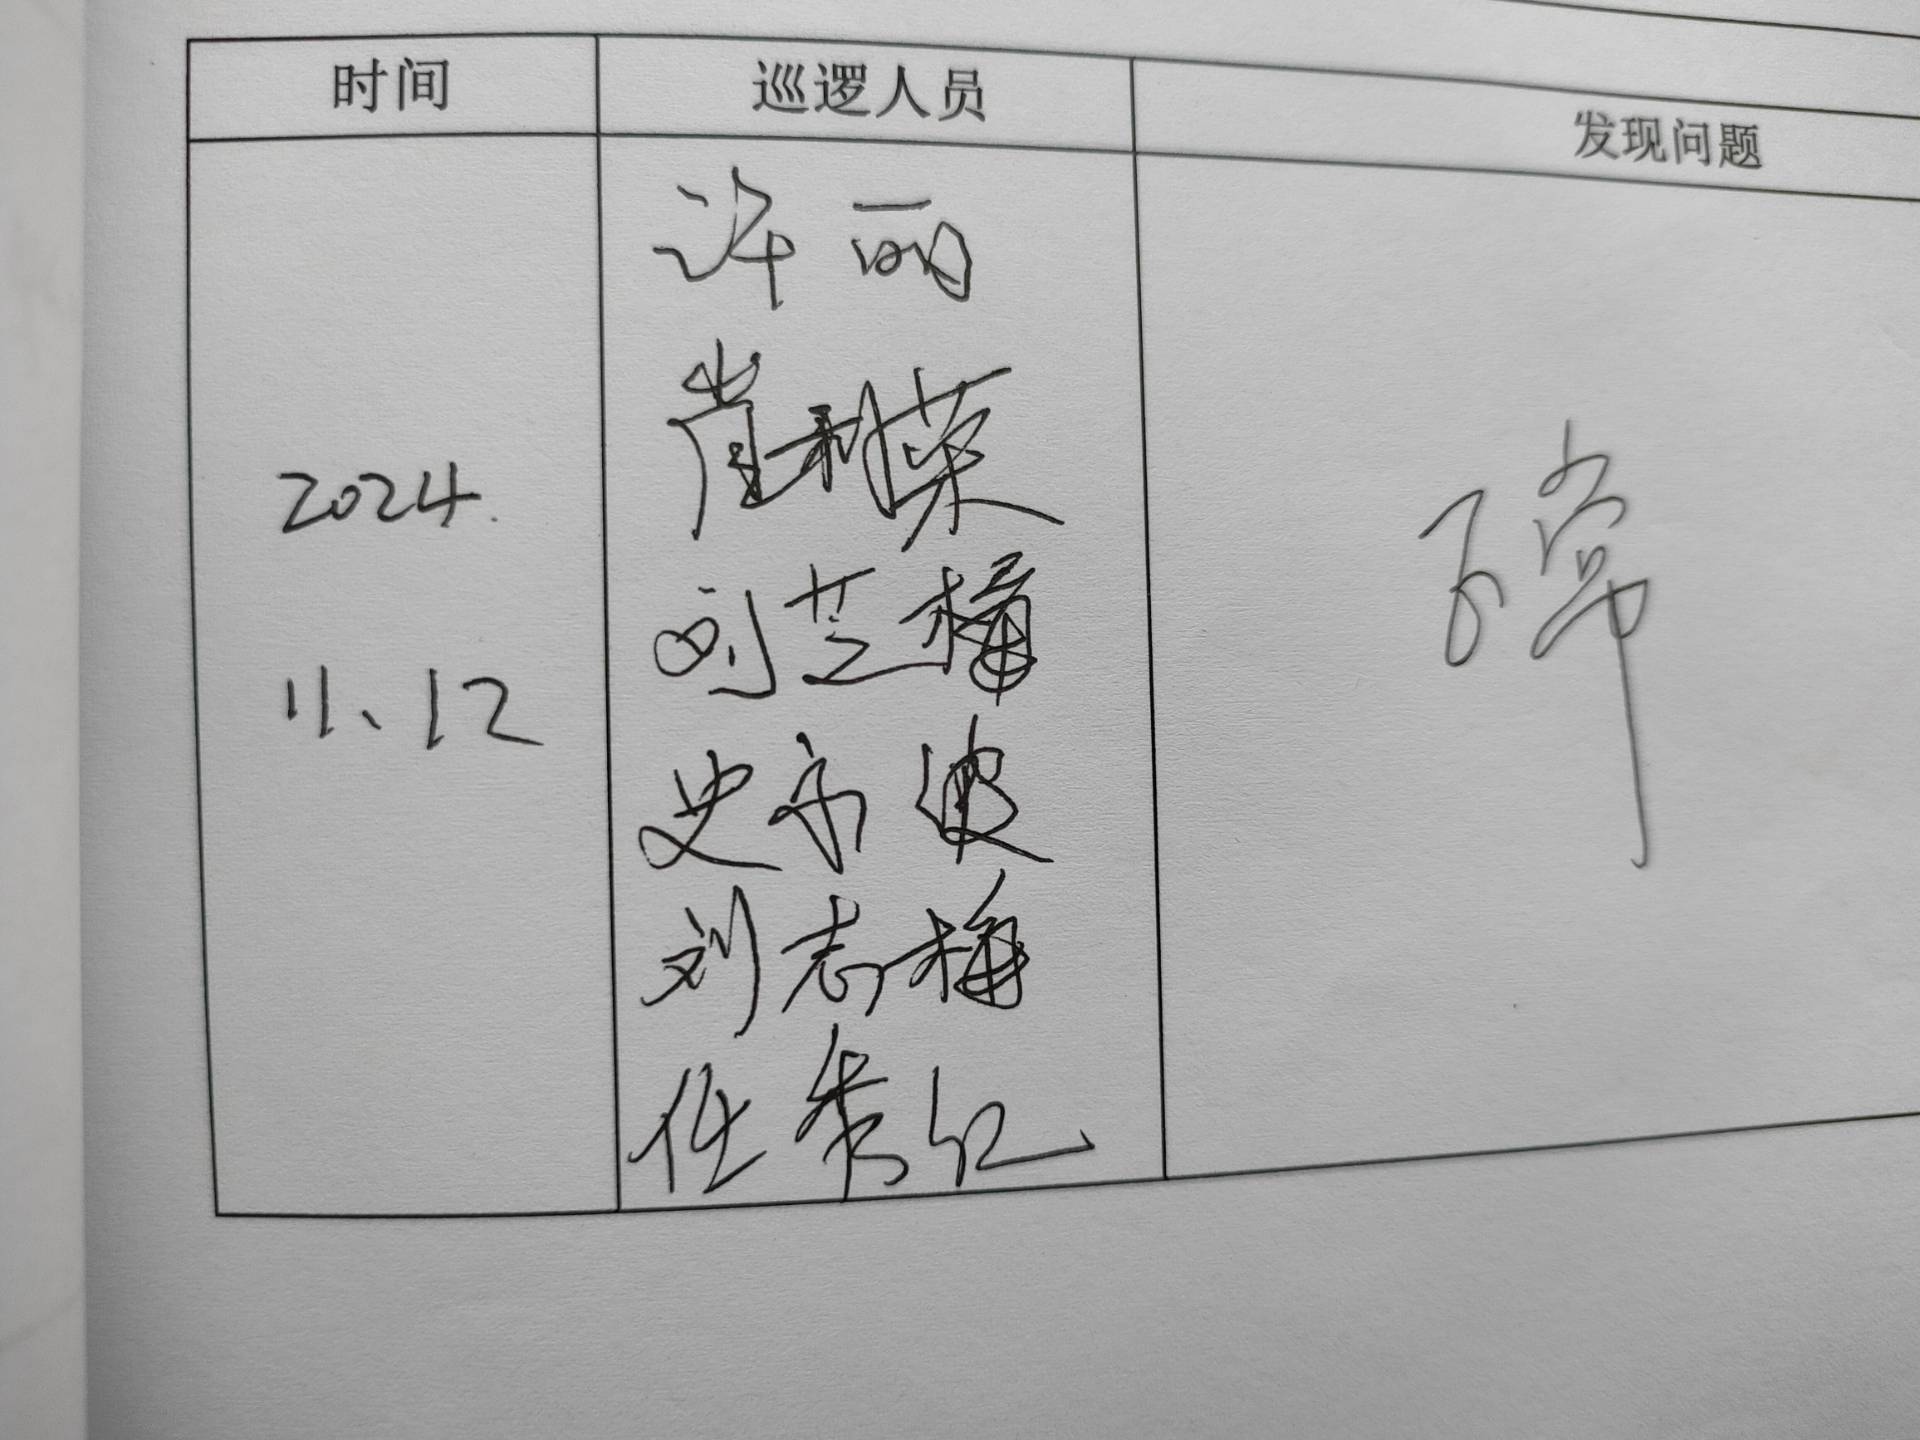 时间 巡逻人员 发现问题
许丽
肖利荣
2024.
刘芝梅
11、12
史永波
刘志梅
任秀红
正常